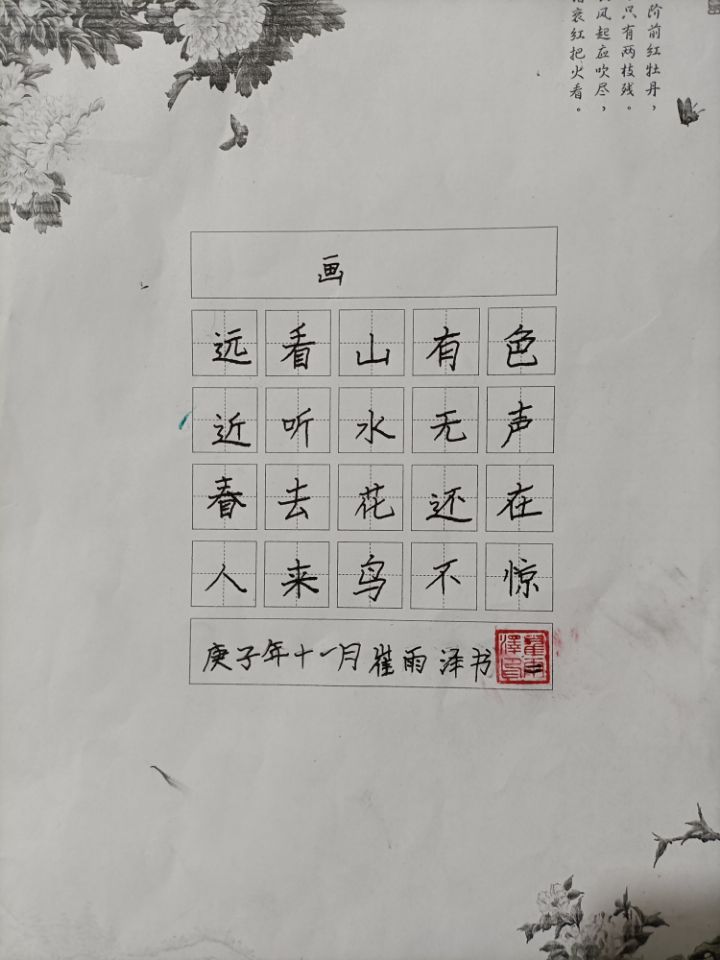 阶前红牡丹，
只有两枝残。
风起应吹尽，
衰红把火看。
画
远看山有色
近听水无声
春去花还在
人来鸟不惊
庚子年十一月崔雨泽书